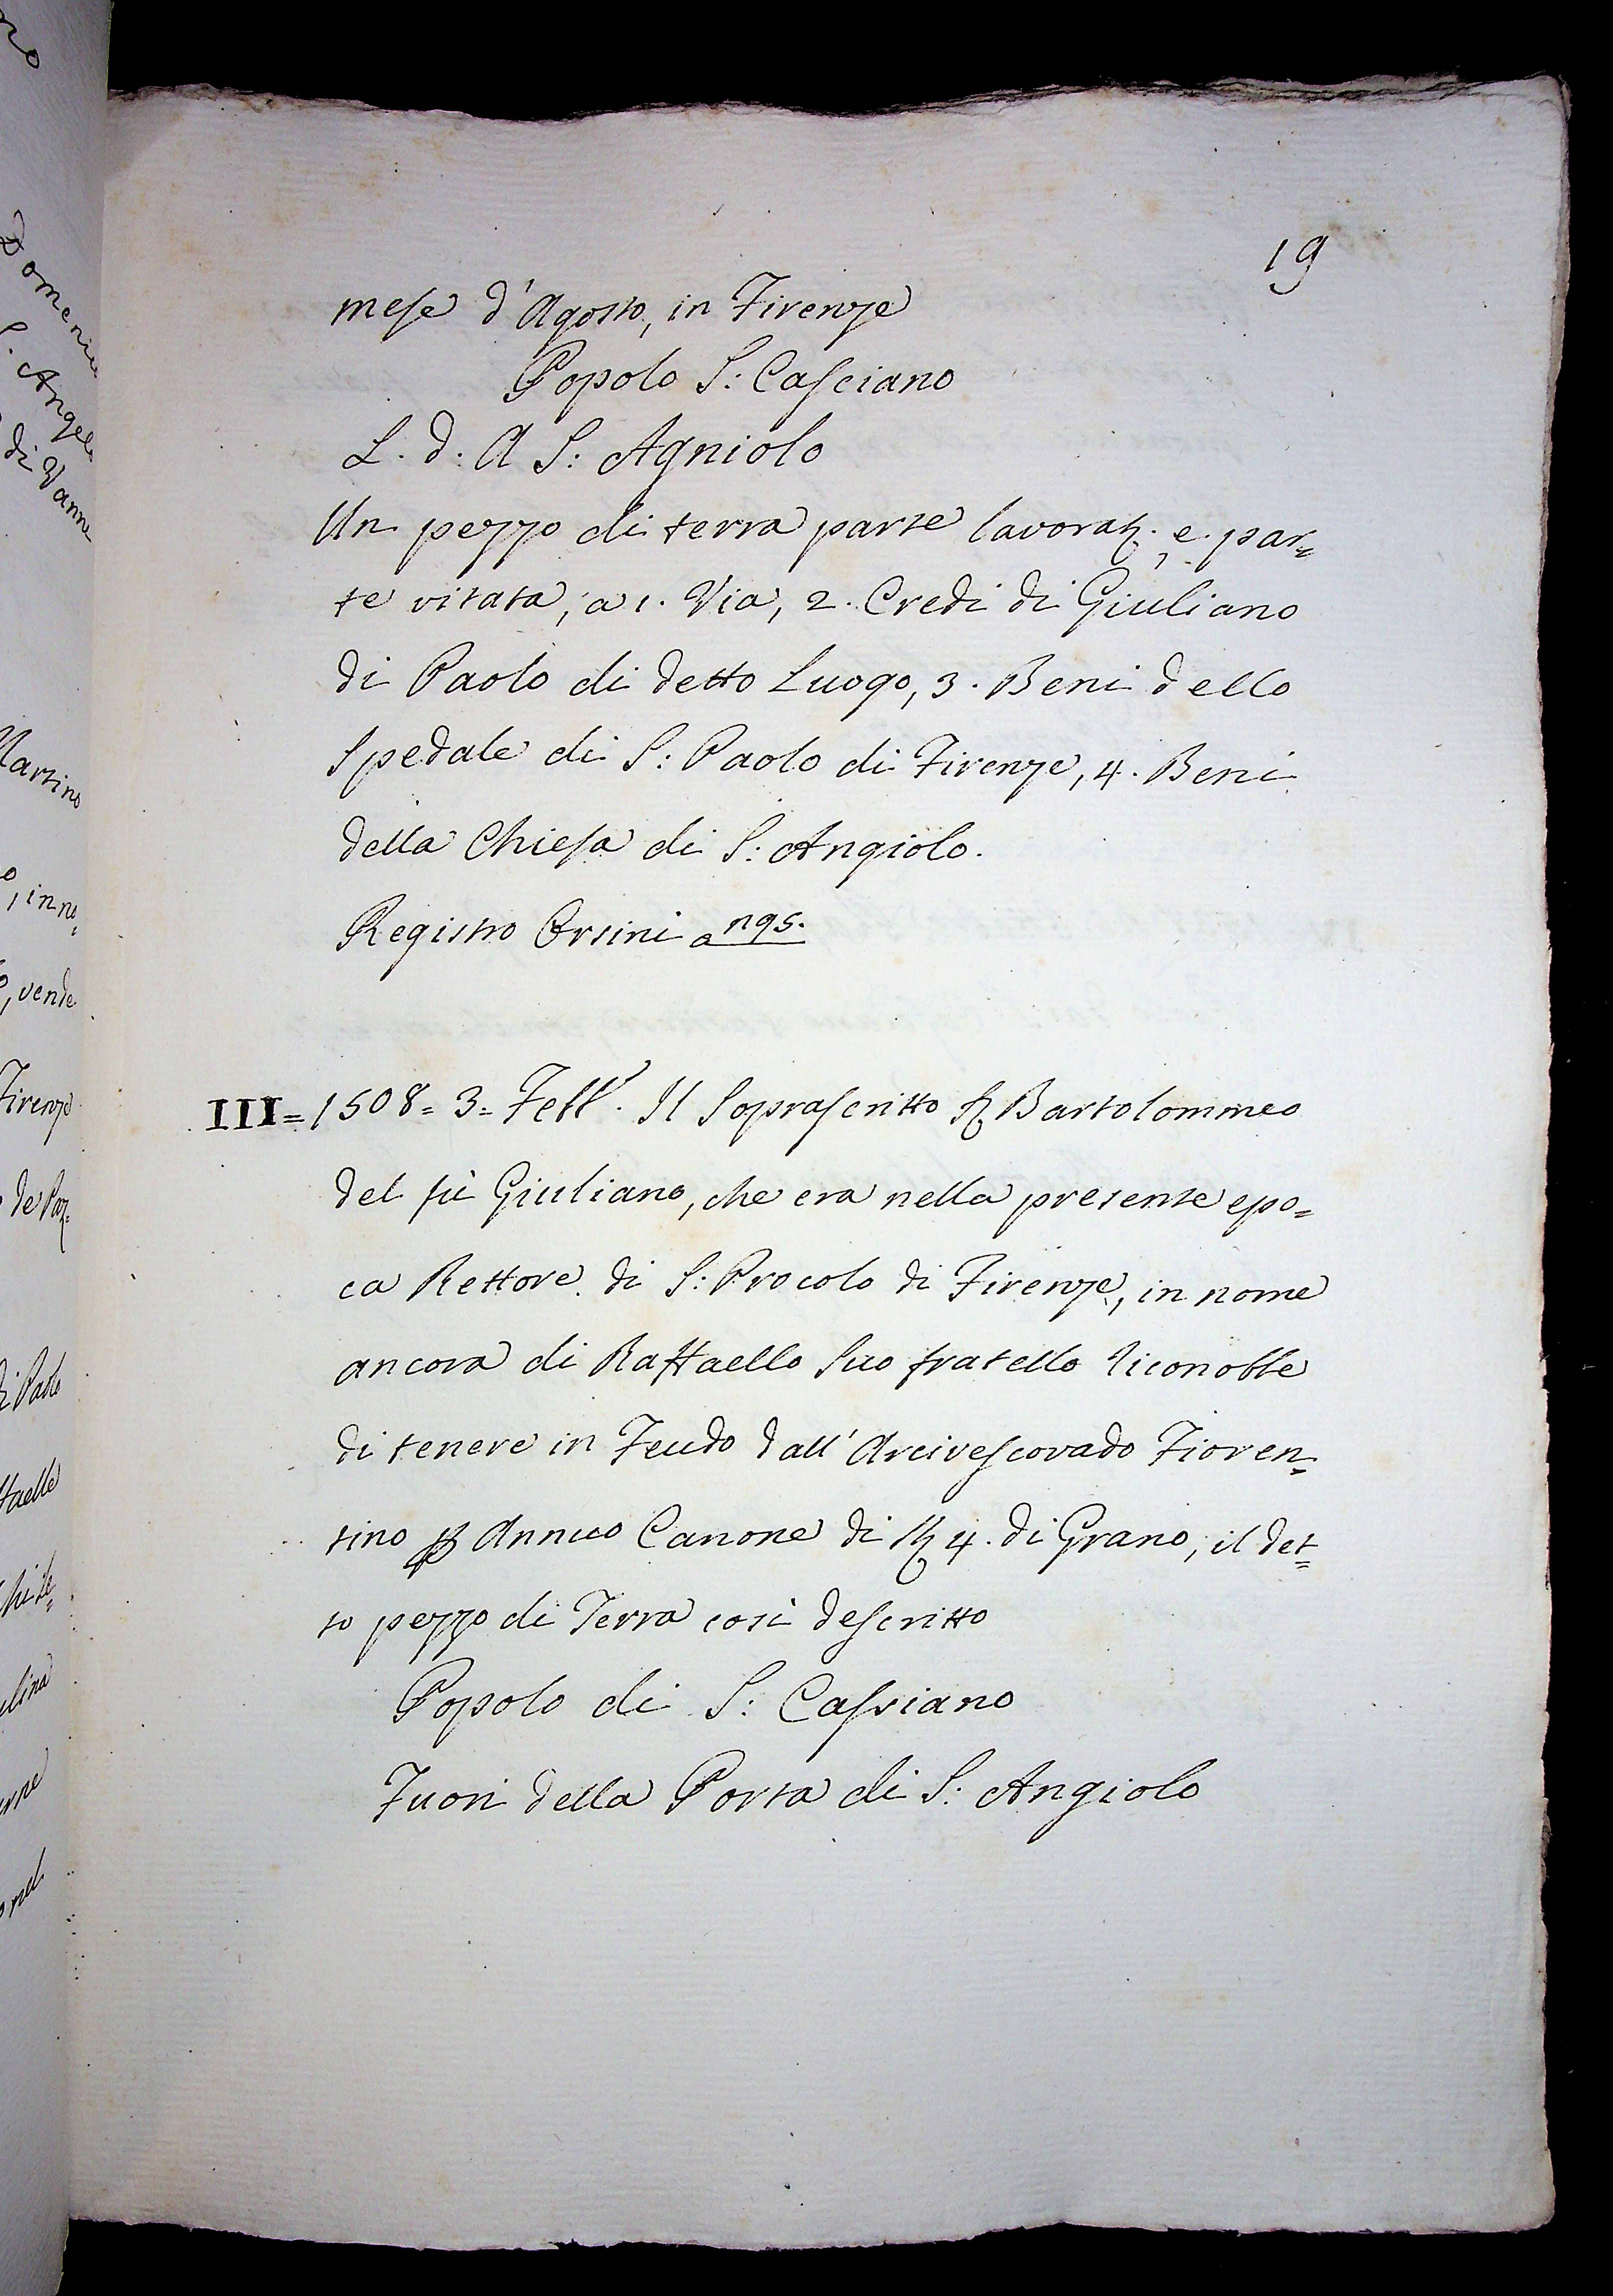 19
mese d'Agosto, in Firenze
Popolo S: Casciano
L. d. A S: Agniolo
Un pezzo di terra parte lavorat. e par=
te vitata, a 1. Via, 2. Credi di Giuliano
di Paolo di detto Luogo, 3. Beni dello
Spedale di S: Paolo di Firenze, 4. Beni
della Chiesa di S: Angiolo.
Registro Orsini a
III = 1508 = 3 = Febb. Il Soprascritto Bartolommeo
del fù Giuliano, che era nella presente epo=
ca Rettore di S: Procolo di Firenze, in nome
ancora di Raffaello Suo fratello riconobbe
di tenere in Feudo dall' Arcivescovado Fioren=
tino p Annuo Canone di 4. di Grano, il det=
to pezzo di Terra così descritto
Popolo di S: Cassiano
Fuori della Porta di S: Angiolo
Angelo
di Vanni
Martino
, in no=
, vende
Firenze
di Paolo